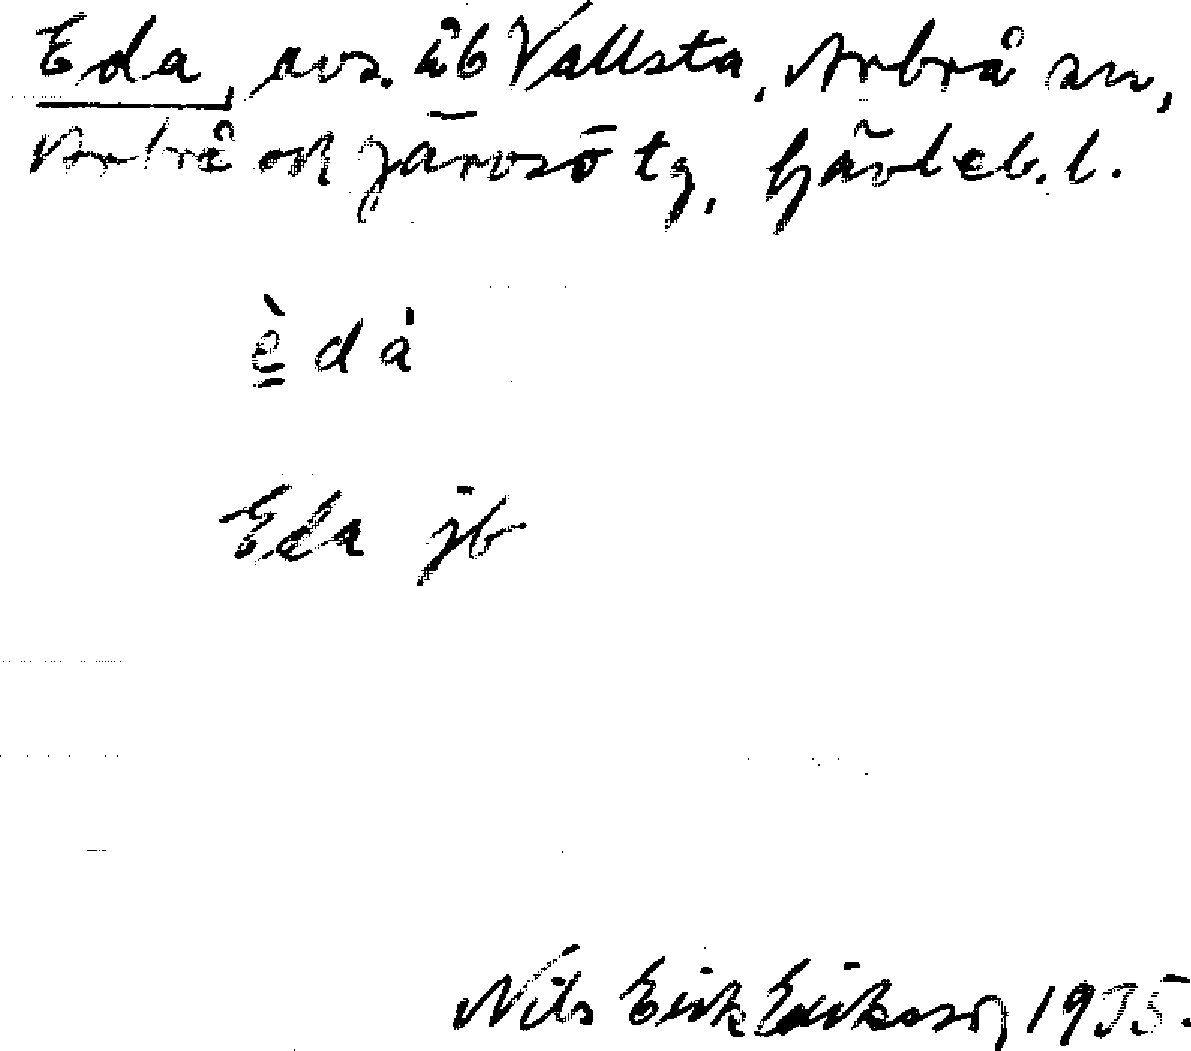 Eda, avs. åb Vallsta, Arbrå sn,
Arbrå och Järvsö tg, Gävleb. l.
è̳ dá
Eda jb
Nils Erik Eriksson 1935.